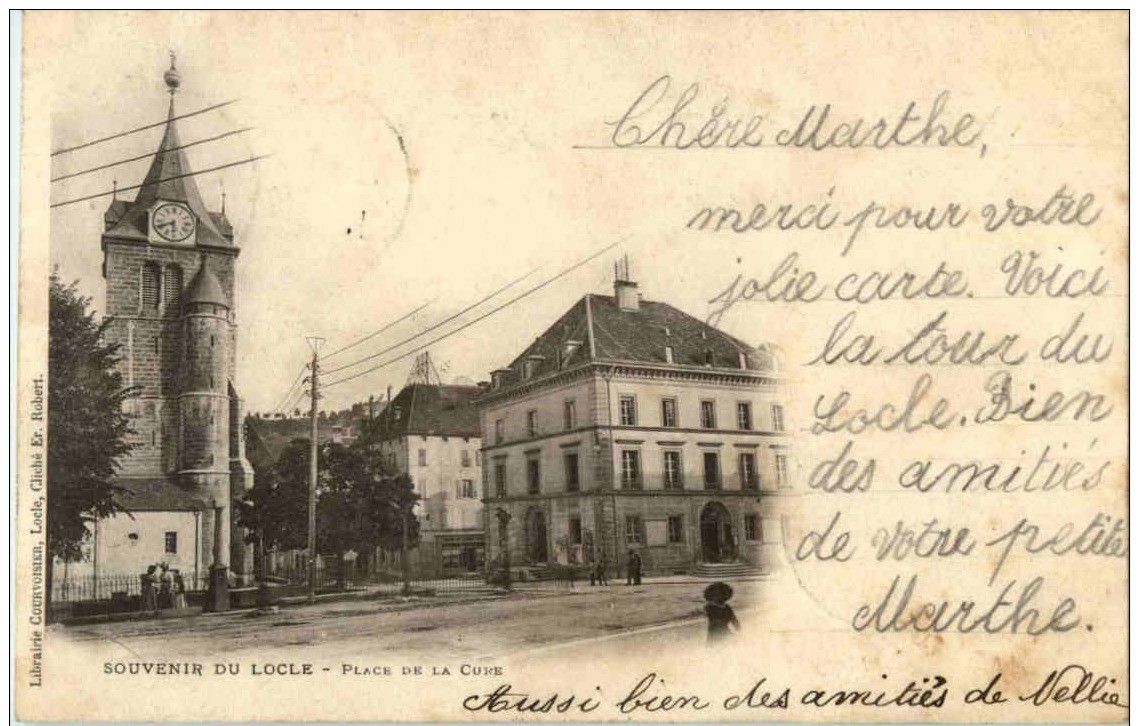 Chère Marthe,
merci pour votre
jolie carte. Voici
la tour du
Locle. Bien
des amitiés
de votre petite
Marthe.
Aussi bien des amitiés de Nellie
SOUVENIR DU LOCLE - PLACE DE LA CURE
Librairie COURVOISIER, Locle, Cliché Er. Robert.